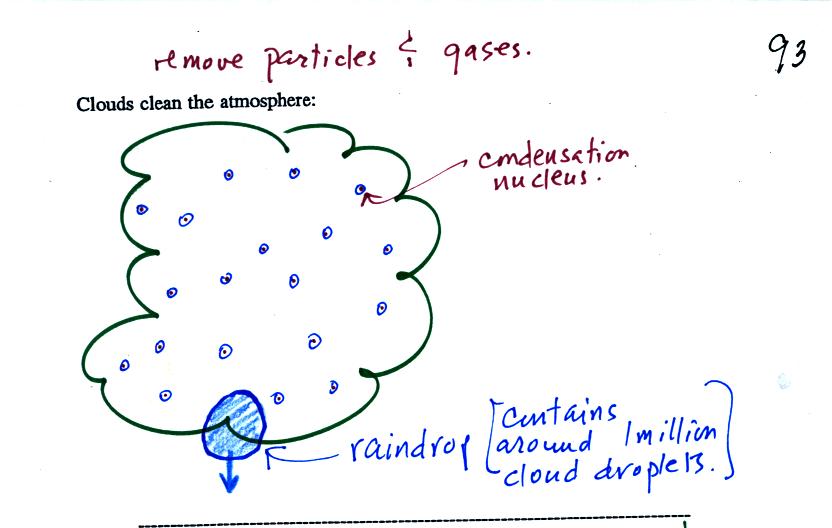 remove particles & gases.
93
Clouds clean the atmosphere:
condensation
nucleus.
raindrop [contains
around 1 million
cloud droplets.]